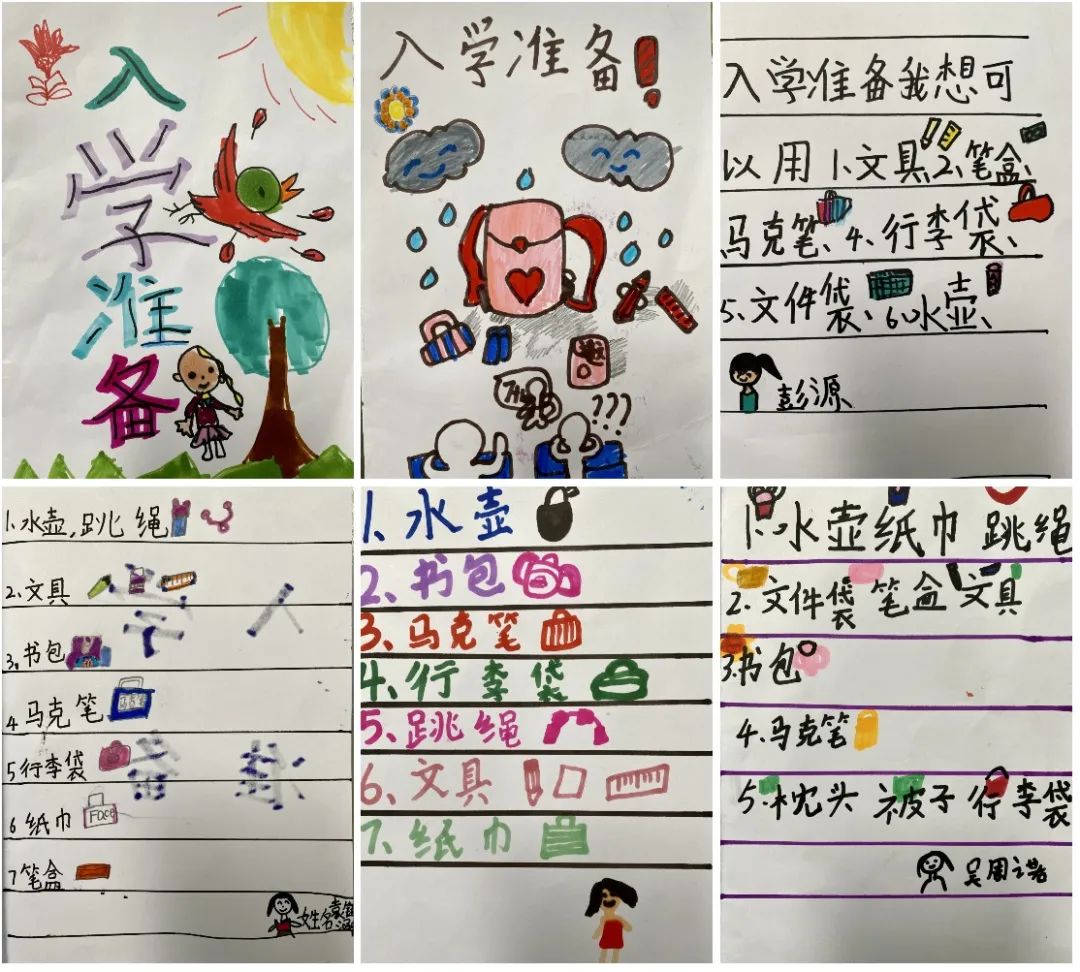 入
学
准
备
入学准备!
邀
???
入学准备我想可
以用1.文具、2、笔盒、
马克笔、4、行李袋、
5、文件袋、6、水壶、
彭源
1、水壶,跳绳
2、文具
3。书包
4马克笔
5行李袋
6纸巾
Face
7笔盒
姓名
1、水壶
2、书包
3、马克笔
4、行李袋
5、跳绳
6、文具
7、纸巾
1、水壶纸巾跳绳
2、文件袋笔盒文具
3.书包
4.马克笔
5、枕头被子行李袋